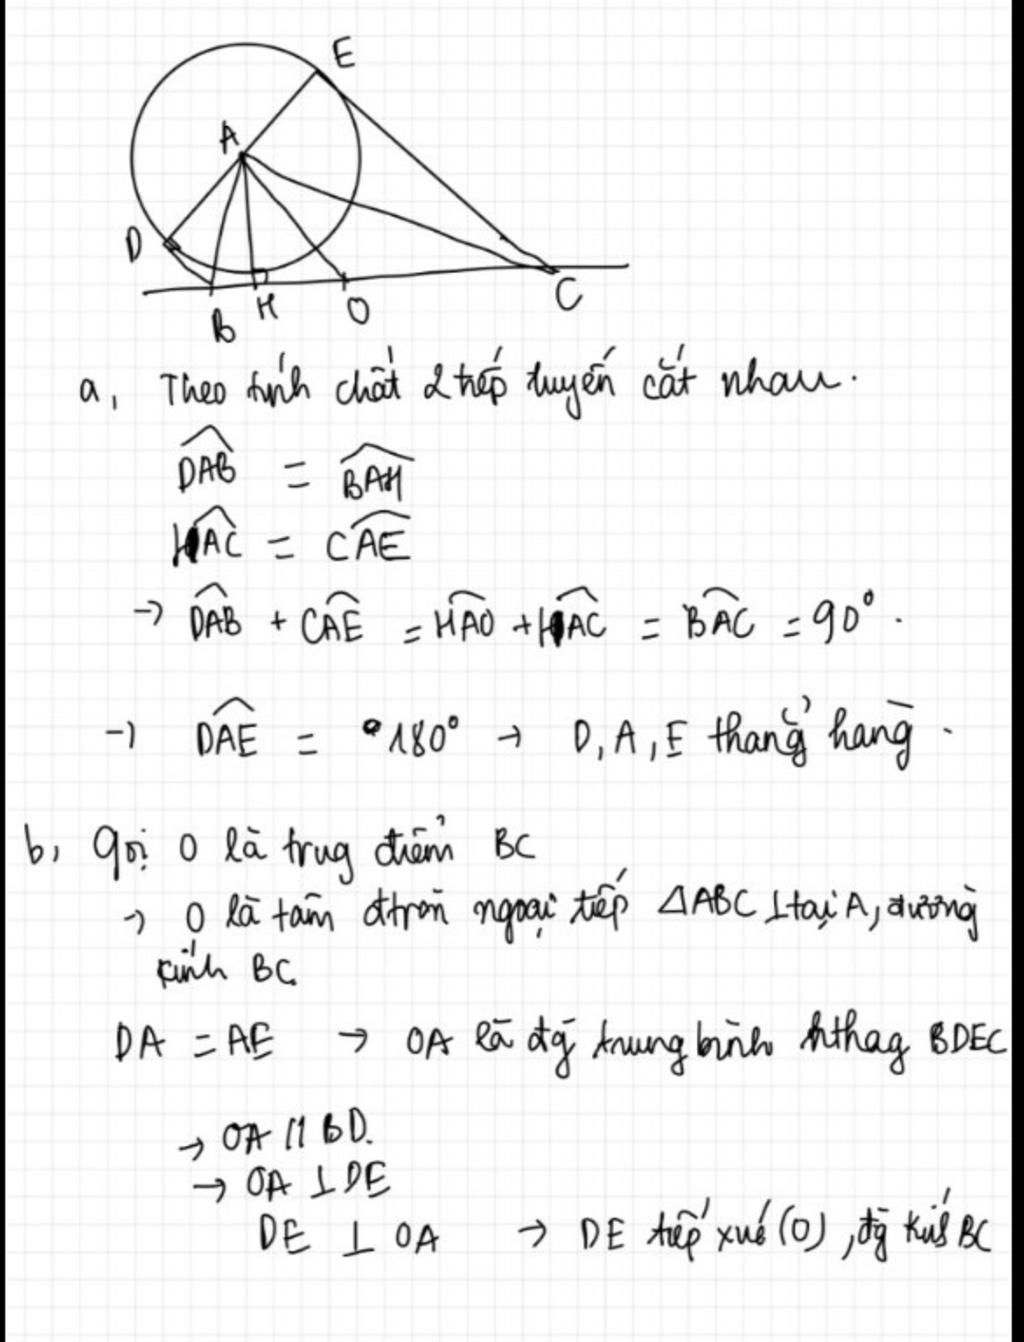 E
A
D
B H O C
a, Theo tính chất 2 tiếp tuyến cắt nhau.
DAB = BAH
HAC = CAE
→ DAB + CAE = HAO + HAC = BAC = 90°.
→ DAE = 180° → D, A, E thẳng hàng.
b, Gọi O là trug điểm BC
→ O là tâm đtròn ngoại tiếp ΔABC ⊥ tại A, đường
kính BC.
DA = AE → OA là đg trung bình hthag BDEC
→ OA // BD.
→ OA ⊥ DE
DE ⊥ OA → DE tiếp xúc (O), đg kính BC